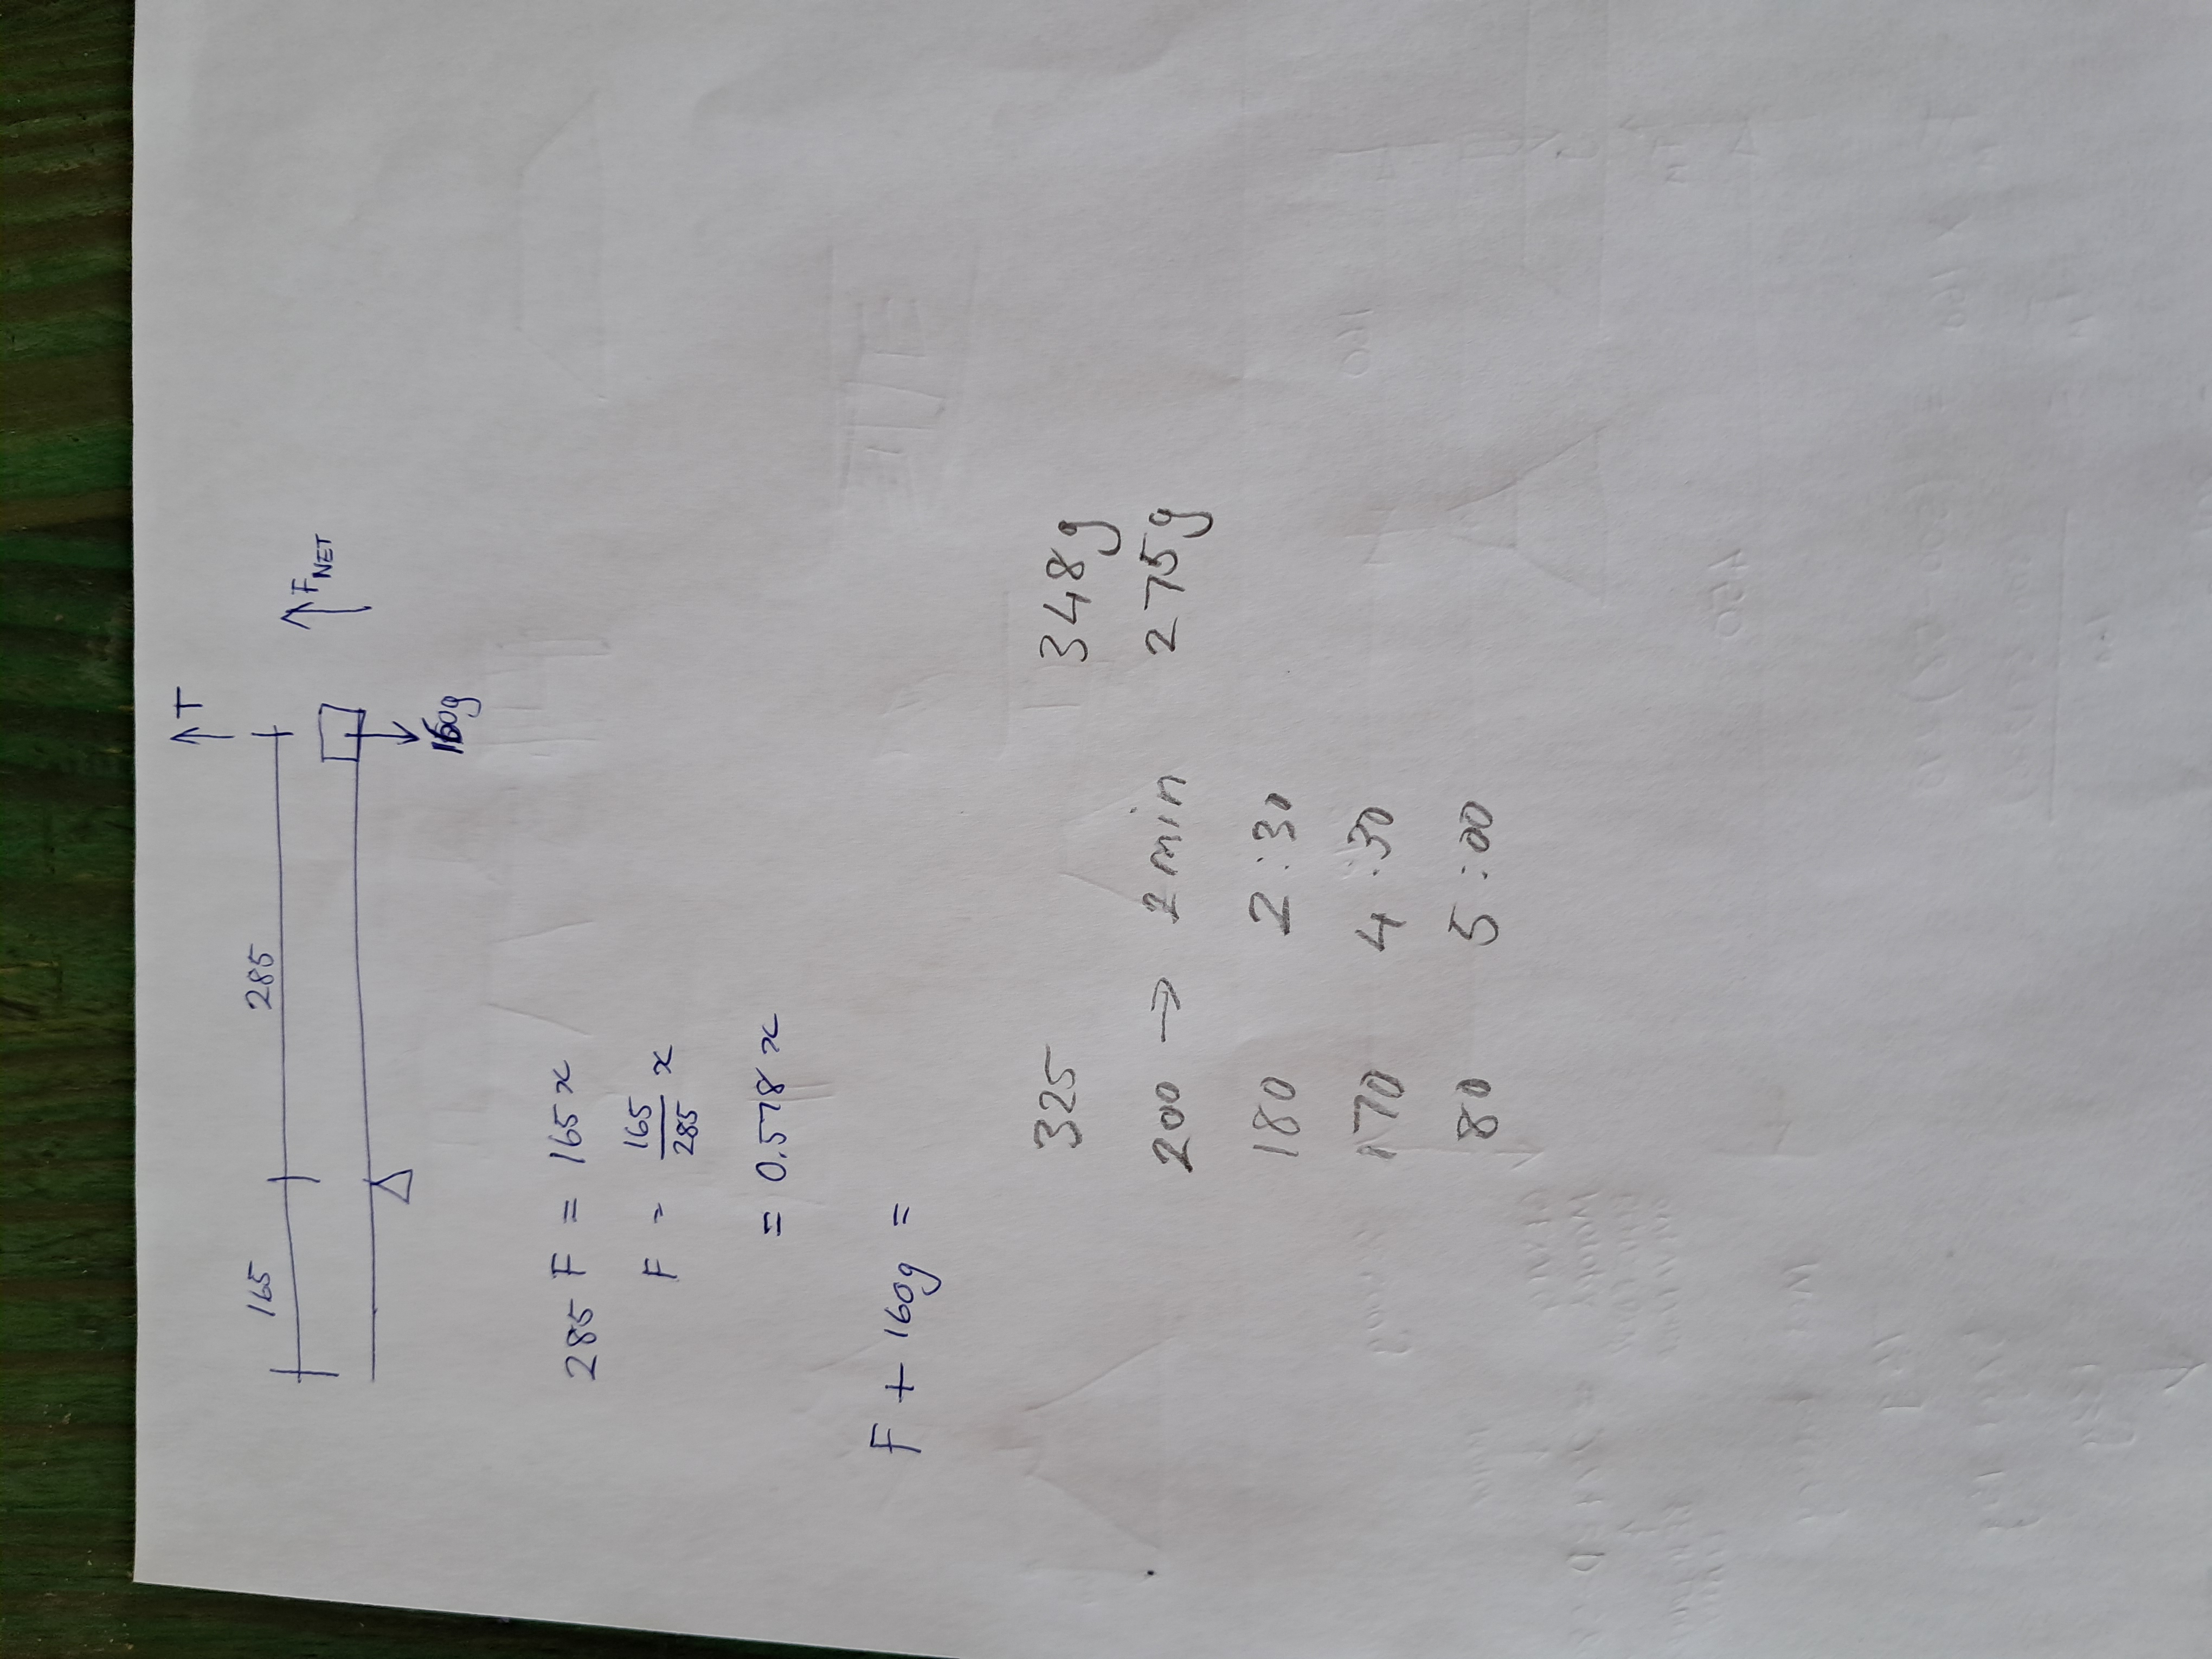 T
165 285
F NET
160g
285 F = 165x
F = 165/285 x
= 0.578x
F + 160g =
325 348g
200 → 2min 275g
180 2:30
170 4:30
80 5:00
160
450